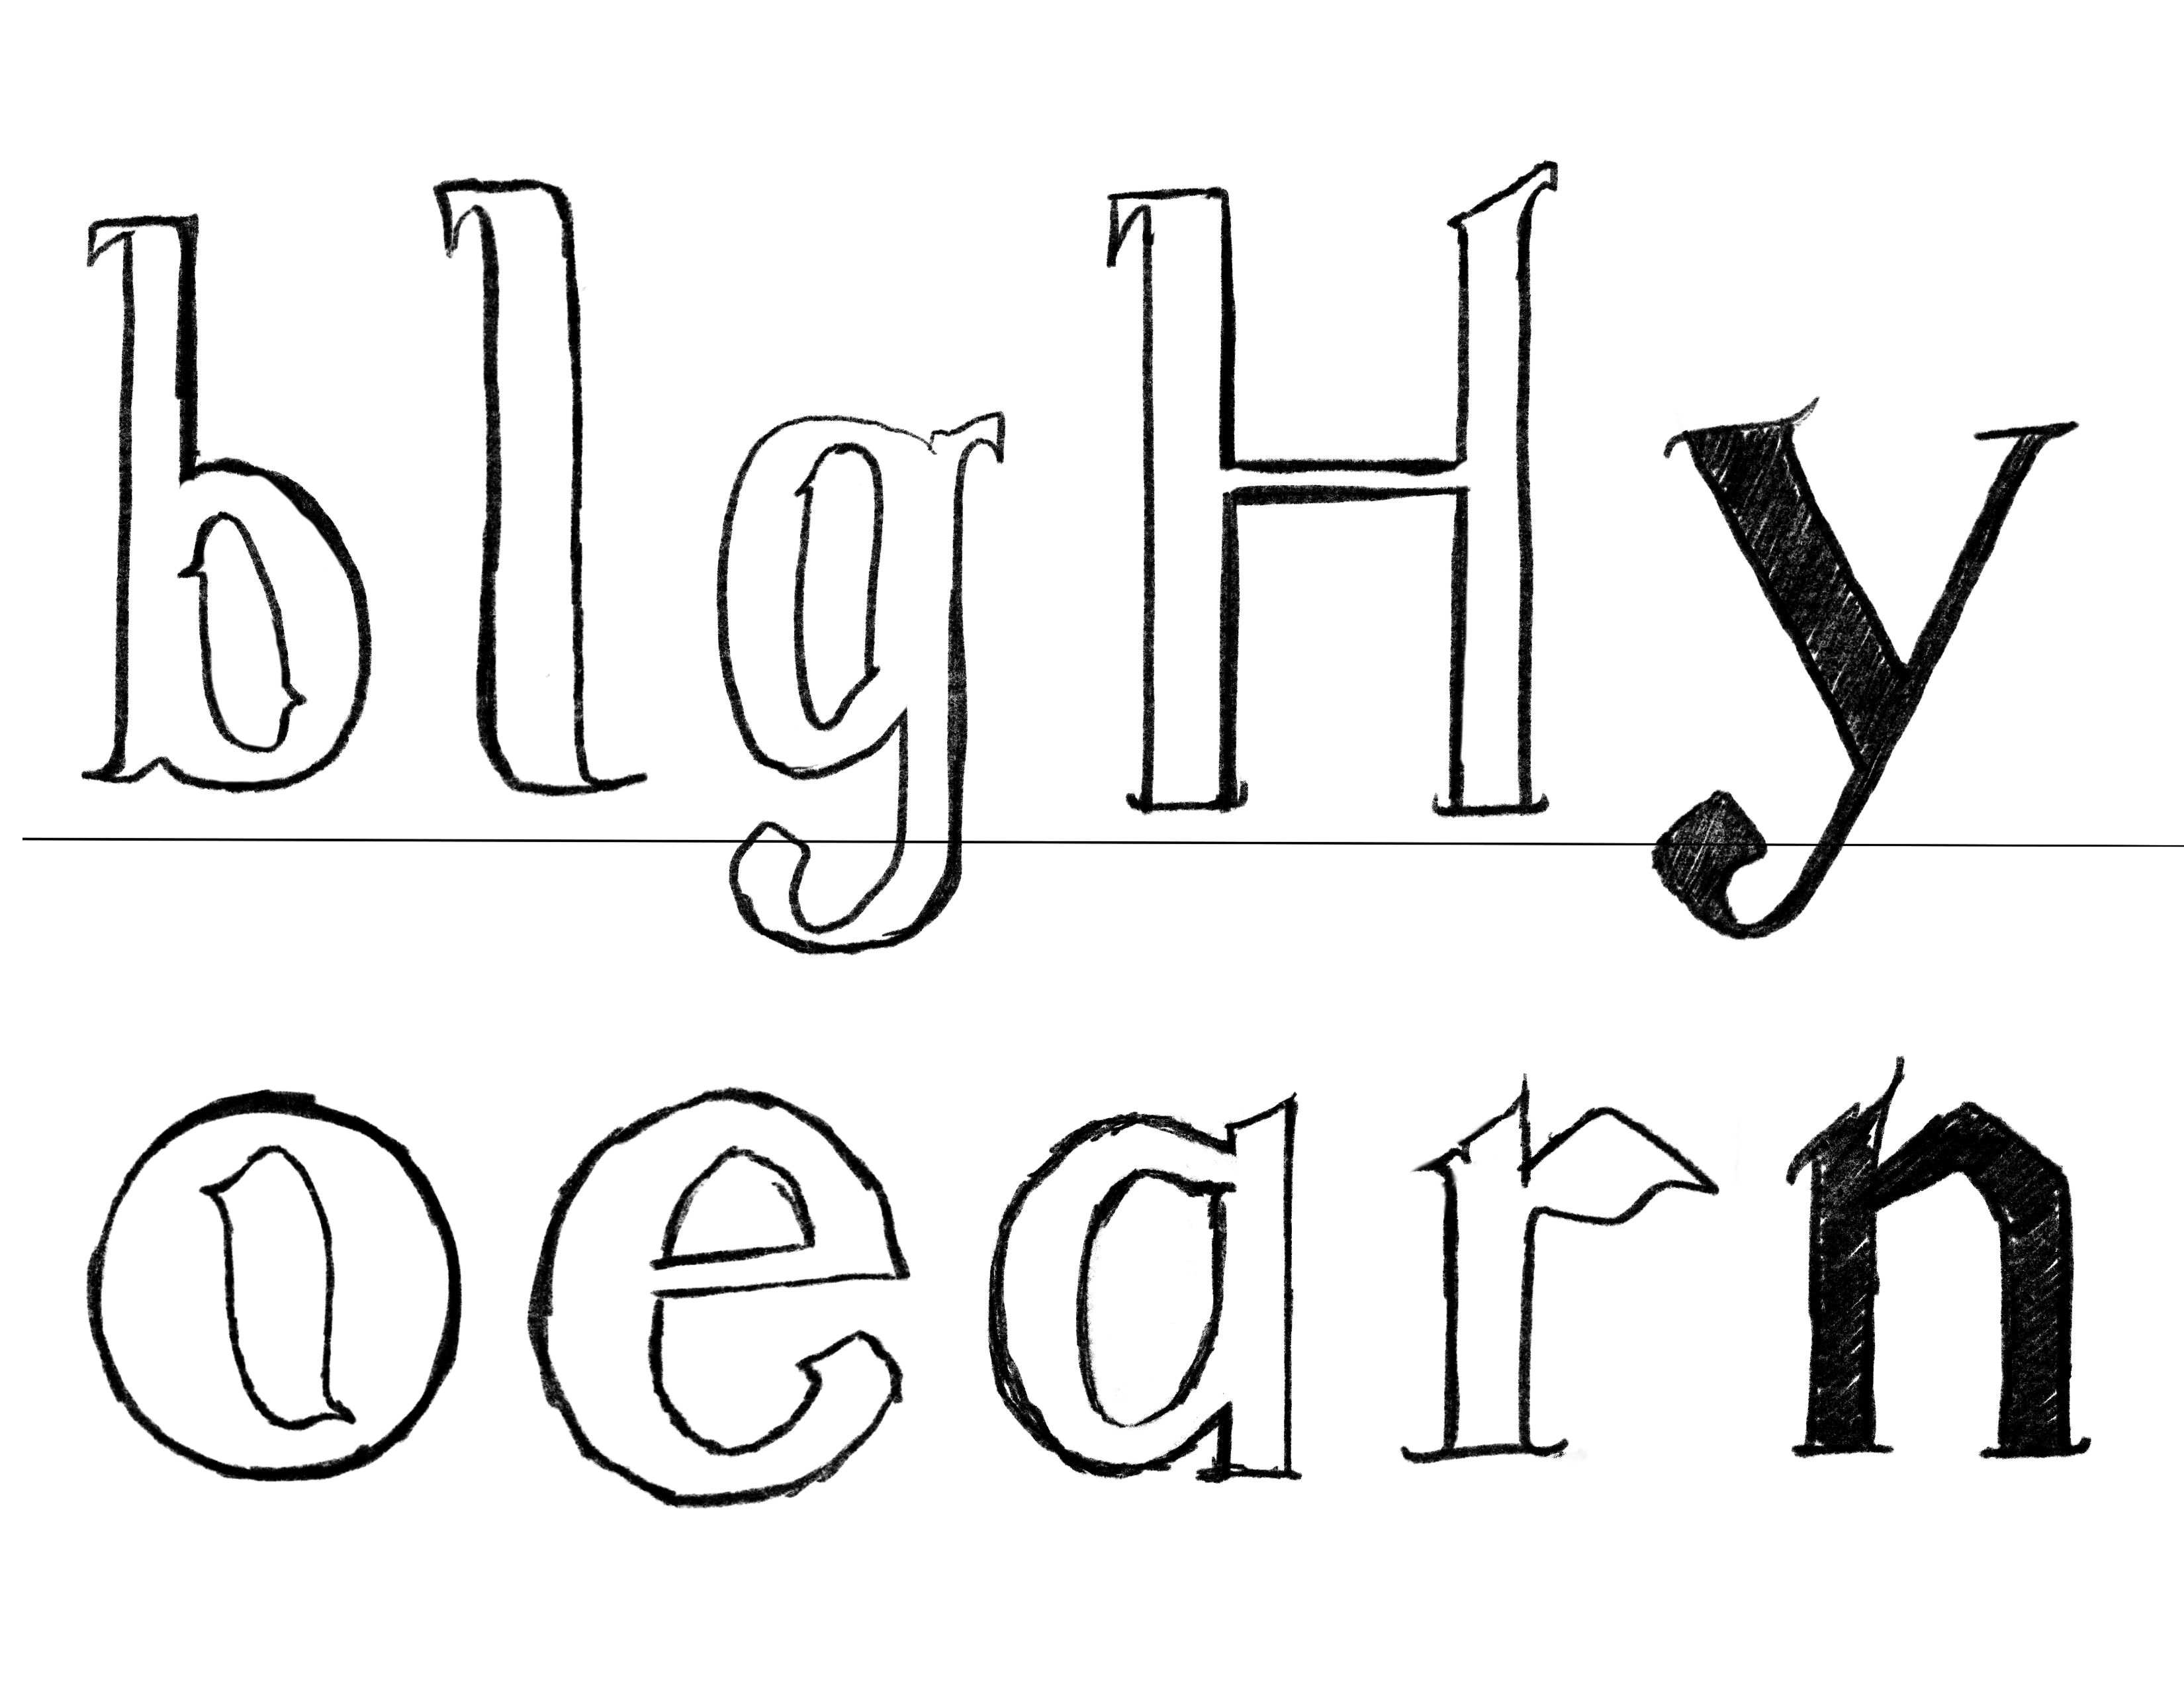 blgHy
oearn